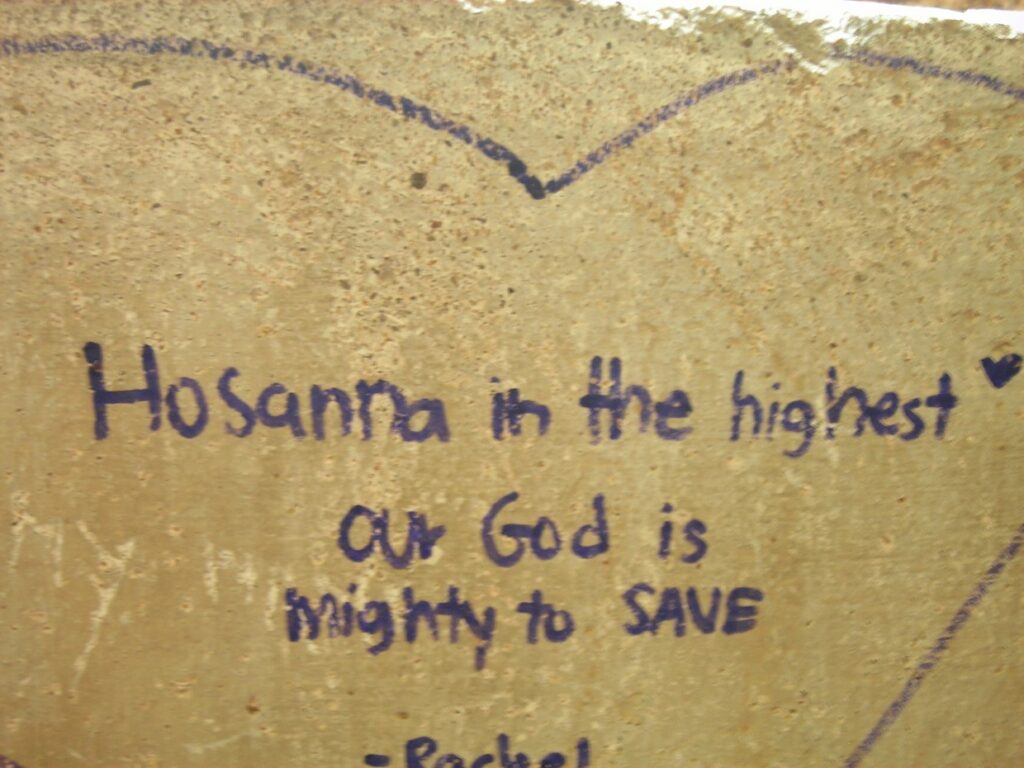 Hosanna in the highest ♥
our God is
mighty to SAVE
-Rachel